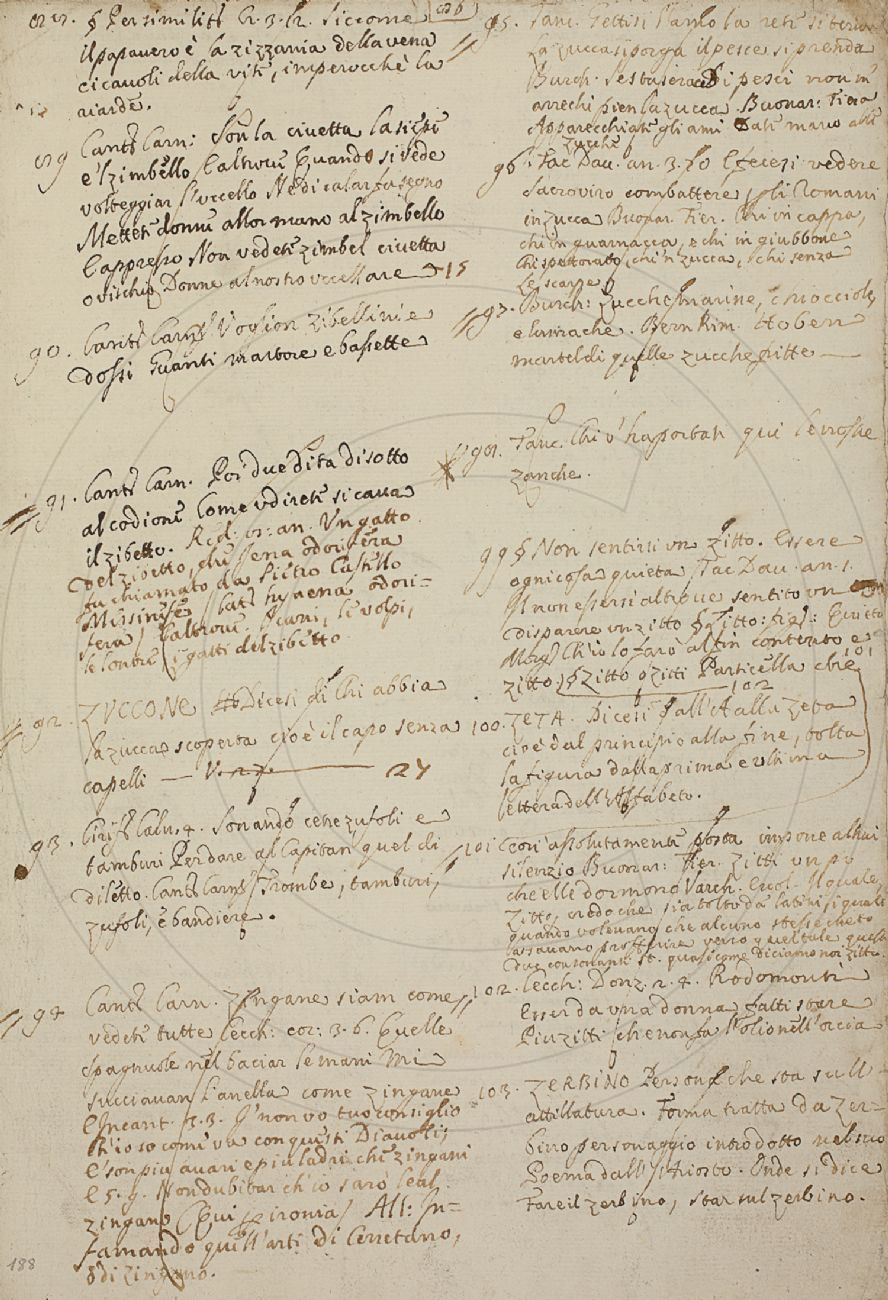 § Per similit. Cr. 3. h. Siccome
il papavero è la zizzania della vena
cicauoli della viti, imperocchè la
riarde.
89 Cant. Carn: Son la ciuetta la siepi
e 'l zimbello, e altrove Quando si vede
volteggiar l'uccello Nè di calar fa segno
Mettete donne allor mano al zimbello
E appresso Non vedete zimbel ciuetta
o vischio Donne al nostro uccellare 15
90. Cant. Carn. Voglion zibellini e
dossi Guanti martore e bassette
91. Cant. Carn. Poi due dita di sotto
al codione Come udirete si caua
il zibetto. Red. os: an. Un gatto
del zibetto, che iena odorifera
fu chiamato da Pietro Castello
Missinese lat. hyaena odori=
fera, e altrove. I cani, le volpi,
le lontre i gatti del zibetto
92. ZUCCONE Dicesi di Chi abbia
la zucca scoperta cioè il capo senza
capelli — V. 27. — 27
93. Cirif. Calu. 4. Sonando cenezufoli e
tamburi Per dare al Capitan quel di
diletto. Cant. Carn. Trombe, tamburi,
zufoli, e bandiere.
94 Cant. Carn. Zingane siam come
vedete tutte Cecch: cor: 3. 6. Quelle
spagnuole nel baciar le mani Mi
succiauan l'anella come zingane
E Incant. 3. 3. I' non vo tuo consiglio
Ch'io so come va con questi Diauoli;
E' son piu auari e piu ladri, che zingani
E 5. 9. Non dubitar ch'io sarò leal
zingano (Qui per ironia) All: In=
famando quell'arti di Cerretano,
o di zingano.
188
95. Tanc. Gettisi l'amo la rete si tiri
La zucca si porga il pesce si prenda
Burch. Se stasera di pesci non m'
arrechi pien la zucca. Buonar: Fiera
Apparecchiate gli ami Date mano alle
zucche
96. Tac Dau. an. 3. 70 E fecesi vedere
Sacroviro combattere, gli Romani
in zucca Buonar. Fier. Chi in cappa,
chi in guarnacca, e chi in giubbone
Chi spettorato, chi 'n zucca, e chi senza
Le scarpe
97. Burch: Zucche marine, chiocciole
e lumache. Bern Rim. Ho ben
martel di quelle zucche fritte —
98. Tanc. Chi v'ha portati qui le vostre
zanche.
99 § Non sentirsi un zitto. Essere
ogni cosa quieta, Tac Dau. an. 1.
Il non essersi altrove sentito un
disparere un zitto § Zitto: Quieto
Morg. Ch'io lo farò alfin contento e
zitto, § Zitto o zitti Particella che 101
102
100. ZETA. Dicesi Dall'A alla Zeta
cioè dal principio alla fine, tolta
la figura dalla prima e ultima
lettera dell'Alfabeto.
101 così assolutamente posta impone altrui
silenzio Buonar: Fier. Zitti un pò
che elle dormono Varch. Ercol. Il quale,
Zitto, credo che sia tolto da latini i quali
quando volevano che alcuno stesse cheto
usavano profferire verso quel tale queste
due consonanti st. quasi come diciamo noi zitto.
102. Cecch: Donz. 2. 4. Rodomonti
Esser da una donna fatti stare
Piu zitti, che non fa l'olio nell'orcio
103. ZERBINO Persona che sta sull'
attillatura. Forma tratta da Zer=
bino personaggio introdotto nel suo
Poema dall'Ariosto. Onde si dice
Fare il zerbino, star sul zerbino.